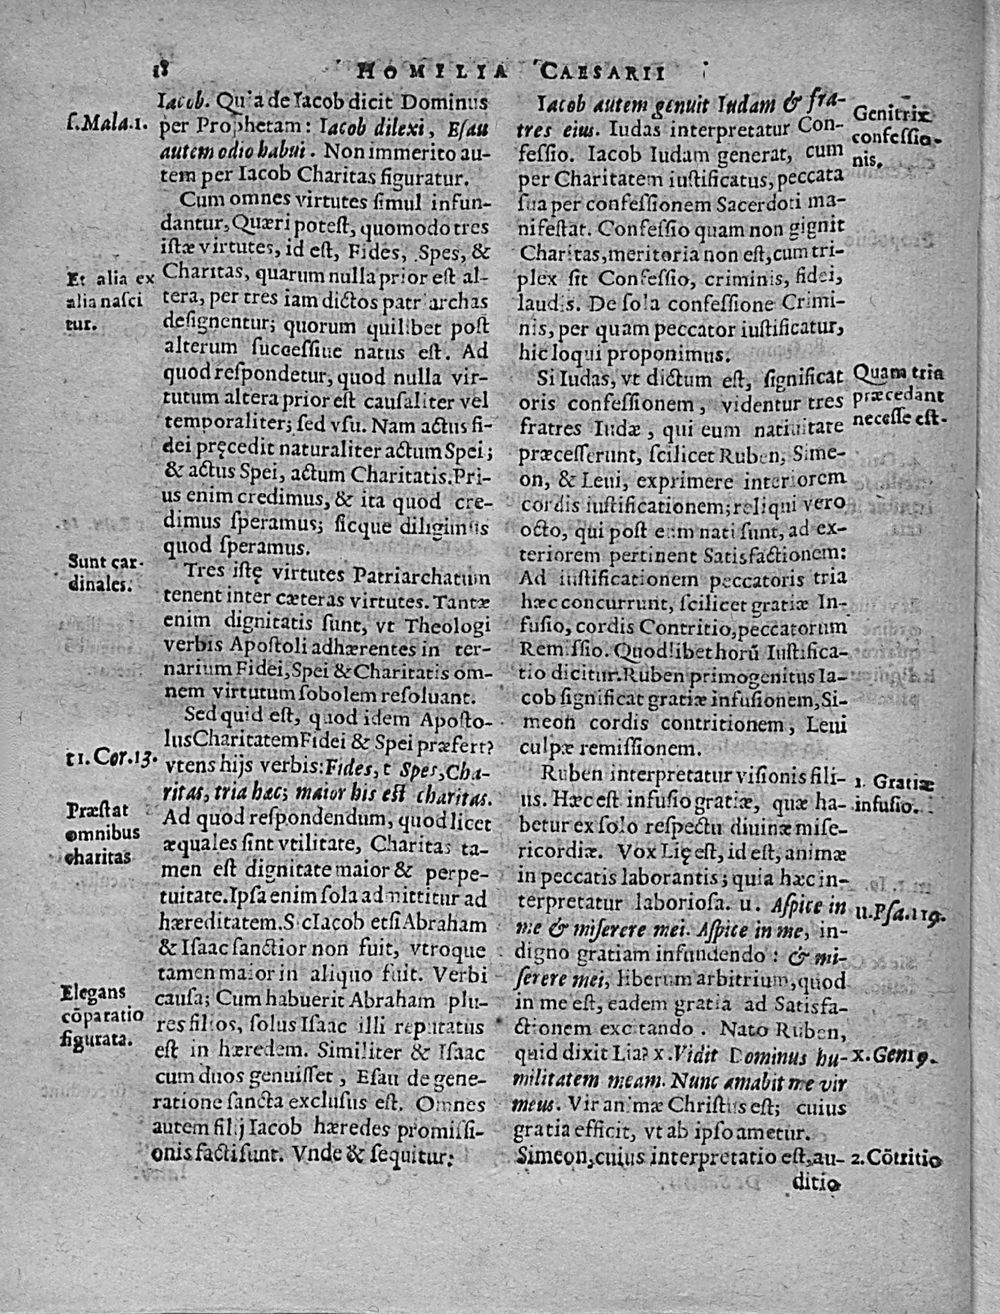 18 HOMILIA CAESARII
Iacob. Quia de Iacob dicit Dominus
ſ. Mala. 1.
per Prophetam: Iacob dilexi, Eſau
autem odio habui. Non immerito au-
tem per Iacob Charitas figuratur.
Cum omnes virtutes ſimul infun-
dantur, Quæri poteſt, quomodo tres
iſtæ virtutes, id eſt, Fides, Spes, &
Et alia ex
alia naſci
tur.
Charitas, quarum nulla prior eſt al-
tera, per tres iam dictos patriarchas
deſignentur; quorum quilibet poſt
alterum ſucceſſiue natus eſt. Ad
quod reſpondetur, quod nulla vir-
tutum altera prior eſt cauſaliter vel
temporaliter; ſed vſu. Nam actus fi-
dei pręcedit naturaliter actum Spei;
& actus Spei, actum Charitatis. Pri-
us enim credimus, & ita quod cre-
dimus ſperamus; ſicque diligimus
quod ſperamus.
Sunt car-
dinales.
Tres iſtę virtutes Patriarchatum
tenent inter cæteras virtutes. Tantæ
enim dignitatis ſunt, vt Theologi
verbis Apoſtoli adhærentes in ter-
narium Fidei, Spei & Charitatis om-
nem virtutum ſobolem reſoluant.
Sed quid eſt, quod idem Apoſto-
lus Charitatem Fidei & Spei præfert?
t 1. Cor. 13.
vtens hijs verbis: Fides, t Spes, Cha-
ritas, tria hæc; maior his eſt charitas.
Præſtat
omnibus
charitas
Ad quod reſpondendum, quod licet
æquales ſint vtilitate, Charitas ta-
men eſt dignitate maior & perpe-
tuitate. Ipſa enim ſola admittitur ad
hæreditatem. Sic Iacob etſi Abraham
& Iſaac ſanctior non fuit, vtroque
tamen maior in aliquo fuit. Verbi
Elegans
cōparatio
figurata.
cauſa; Cum habuerit Abraham plu-
res filios, ſolus Iſaac illi reputatus
eſt in hæredem. Similiter & Iſaac
cum duos genuiſſet, Eſau de gene-
ratione ſancta excluſus eſt. Omnes
autem filij Iacob hæredes promiſſi-
onis facti ſunt. Vnde & ſequitur:
Iacob autem genuit Iudam & fra-
tres eius. Iudas interpretatur Con-
Genitrix
confeſſio-
nis.
feſſio. Iacob Iudam generat, cum
per Charitatem iuſtificatus, peccata
ſua per confeſſionem Sacerdoti ma-
nifeſtat. Confeſſio quam non gignit
Charitas, meritoria non eſt, cum tri-
plex ſit Confeſſio, criminis, fidei,
laudis. De ſola confeſſione Crimi-
nis, per quam peccator iuſtificatur,
hic loqui proponimus.
Si Iudas, vt dictum eſt, ſignificat
Quam tria
præcedant
neceſſe eſt.
oris confeſſionem, videntur tres
fratres Iudæ, qui eum natiuitate
præceſſerunt, ſcilicet Ruben, Sime-
on, & Leui, exprimere interiorem
cordis iuſtificationem; reliqui vero
octo, qui poſt eum nati ſunt, ad ex-
teriorem pertinent Satisfactionem:
Ad iuſtificationem peccatoris tria
hæc concurrunt, ſcilicet gratiæ In-
fuſio, cordis Contritio, peccatorum
Remiſſio. Quodlibet horū Iuſtifica-
tio dicitur. Ruben primogenitus Ia-
cob ſignificat gratiæ infuſionem, Si-
meon cordis contritionem, Leui
culpæ remiſſionem.
Ruben interpretatur viſionis fili-
1. Gratiæ
infuſio.
us. Hæc eſt infuſio gratiæ, quæ ha-
betur ex ſolo reſpectu diuinæ miſe-
ricordiæ. Vox Lię eſt, id eſt, animæ
in peccatis laborantis; quia hæc in-
terpretatur laborioſa. u. Aſpice in
u. Pſa. 119.
me & miſerere mei. Aſpice in me, in-
digno gratiam infundendo: & mi-
ſerere mei, liberum arbitrium, quod
in me eſt, eadem gratia ad Satisfa-
ctionem excitando. Nato Ruben,
quid dixit Lia? x. Vidit Dominus hu-
x. Gen 19.
militatem meam. Nunc amabit me vir
meus. Vir animæ Chriſtus eſt; cuius
gratia efficit, vt ab ipſo ametur.
Simeon, cuius interpretatio eſt, au-
2. Cōtritio
ditio